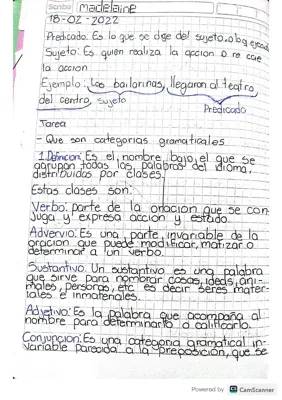 Scribe madelaine
18-02-2022
Predicado: Es lo que se dise del sujeto o lo q
Sujeto: Es quien realiza la accion o re cae
la accion
Ejemplo: Las bailarinas, llegaron al teatro,
del centro, sujeto
Predicado
Tarea
- Que son categorias gramaticales
1 Definicion: Es el nombre bajo el que se
agrupan todas las palabras del idioma,
distribuidas por clases.
Estas clases son:
Verbo: parte de la oración que se con
juga y expresa acción y estado.
Advervio: Es una parte invariable de la
oración que puede modificar, matizar o
determinar a un verbo.
Sustantivo: Un sustantivo es una palabra
que sirve para nombrar cosas, ideas, ani-
males, personas, etc es decir seres mater-
iales e inmateriales.
Adjetivo: Es la palabra que acompaña al
nombre para determinarlo o calificarlo.
Conjuncion: Es una categoria gramatical in-
variable parecida a la preposición, que se
Powered by CS CamScanner